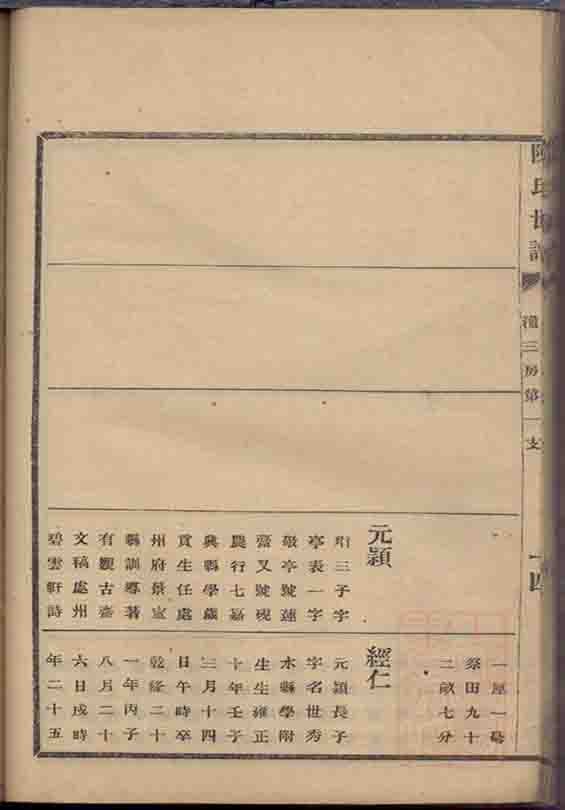 陳氏世譜
禮三房第一支
十四
元潁
珩三子字
亭表一字
敬亭號蓮
齋又號硯
農行七嘉
興縣學歲
貢生任處
州府景寧
縣訓導著
有觀古齋
文稿處州
碧雲軒詩
一厘一毫
祭田九十
二畝七分
經仁
元潁長子
字名世秀
水縣學附
生生雍正
十年壬子
三月十四
日午時卒
乾隆二十
一年丙子
八月二十
六日戌時
年二十五